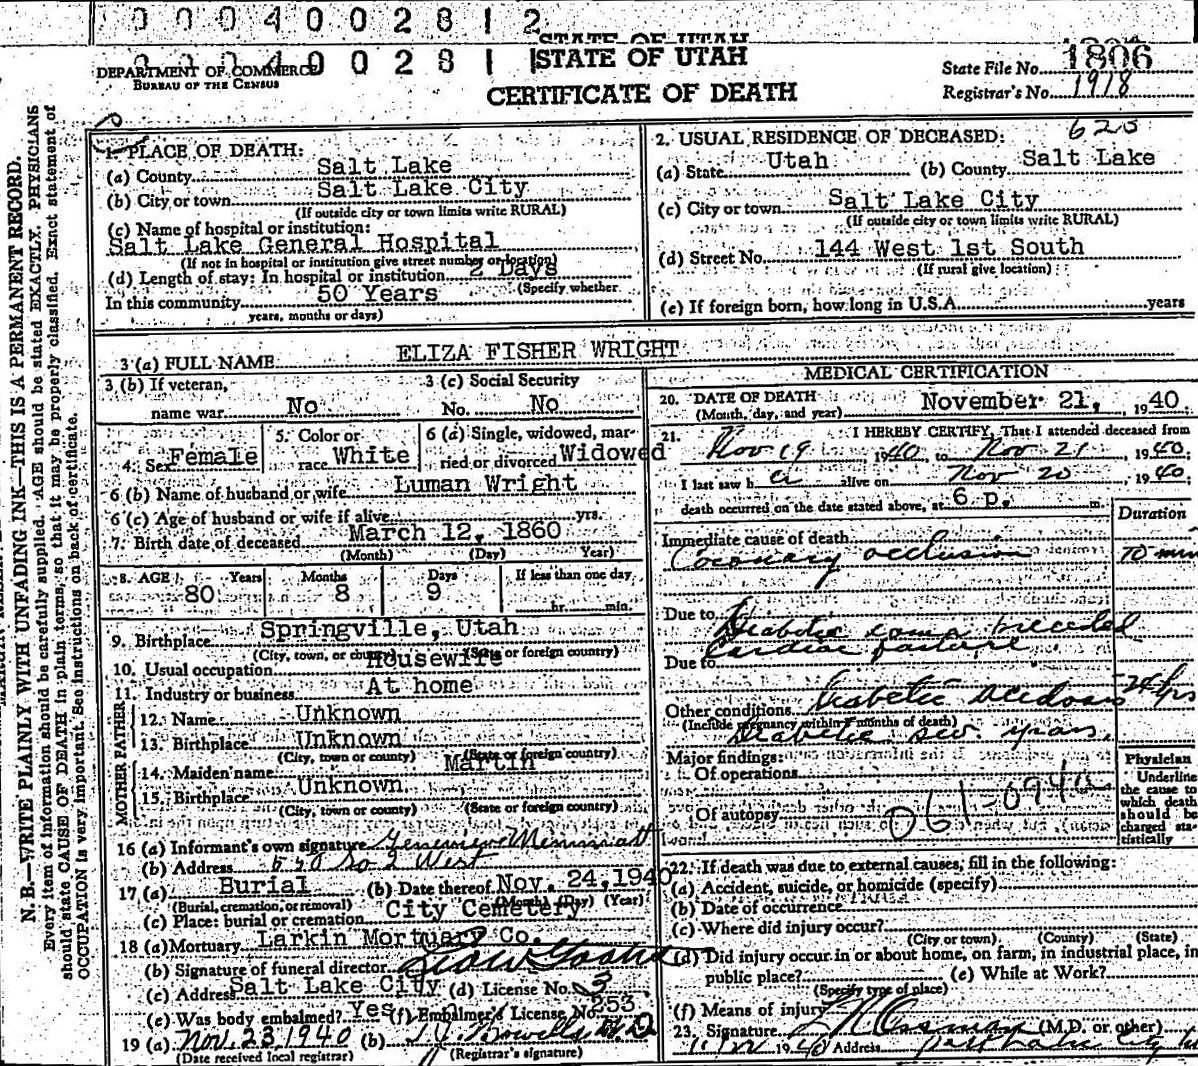 0 0 0 4 0 0 2 8 1 2
STATE OF UTAH
0 0 0 4 0 0 2 8 1 1
STATE OF UTAH
DEPARTMENT OF COMMERCE
BUREAU OF THE CENSUS
CERTIFICATE OF DEATH
State File No. 1806
Registrar's No. 1918
N. B.—WRITE PLAINLY WITH UNFADING INK—THIS IS A PERMANENT RECORD.
Every item of information should be carefully supplied. AGE should be stated EXACTLY. PHYSICIANS
should state CAUSE OF DEATH in plain terms, so that it may be properly classified. Exact statement of
OCCUPATION is very important. See instructions on back of certificate.
1. PLACE OF DEATH:
(a) County Salt Lake
(b) City or town Salt Lake City
(If outside city or town limits write RURAL)
(c) Name of hospital or institution:
Salt Lake General Hospital
(If not in hospital or institution give street number or location)
(d) Length of stay: In hospital or institution 2 Days
(Specify whether
In this community 50 Years
years, months or days)
2. USUAL RESIDENCE OF DECEASED: 625
(a) State Utah (b) County Salt Lake
(c) City or town Salt Lake City
(If outside city or town limits write RURAL)
(d) Street No. 144 West 1st South
(If rural give location)
(e) If foreign born, how long in U.S.A. years
3 (a) FULL NAME ELIZA FISHER WRIGHT
3 (b) If veteran,
name war No
3 (c) Social Security
No. No
4. Sex Female
5. Color or
race White
6 (a) Single, widowed, mar-
ried or divorced Widowed
6 (b) Name of husband or wife Luman Wright
6 (c) Age of husband or wife if alive yrs.
7. Birth date of deceased March 12, 1860
(Month) (Day) Year)
8. AGE Years Months Days If less than one day
80 8 9 hr. min.
9. Birthplace Springville, Utah
(City, town, or county) (State or foreign country)
10. Usual occupation Housewife
11. Industry or business At home
FATHER
12. Name Unknown
13. Birthplace Unknown
(City, town or county) (State or foreign country)
MOTHER
14. Maiden name Martin
15. Birthplace Unknown
(City, town or county) (State or foreign country)
16 (a) Informant's own signature Genevieve
(b) Address So 2 West
17 (a) Burial (b) Date thereof Nov. 24, 1940
(Burial, cremation, or removal) (Month) (Day) (Year)
(c) Place: burial or cremation City Cemetery
18 (a) Mortuary Larkin Mortuary Co.
(b) Signature of funeral director
(c) Address Salt Lake City (d) License No. 3
(e) Was body embalmed? Yes (f) Embalmer's License No. 253
19 (a) Nov. 23, 1940 (b)
(Date received local registrar) (Registrar's signature)
MEDICAL CERTIFICATION
20. DATE OF DEATH
(Month, day, and year) November 21, 1940
21. I HEREBY CERTIFY, That I attended deceased from
Nov 19 1940, to Nov 21, 1940;
I last saw her alive on Nov 20, 1940;
death occurred on the date stated above, at 6 p. m.
Duration
Immediate cause of death
Coronary occlusion 70 min
Due to Diabetic coma preceded
cardiac failure
Due to
Other conditions Diabetic acidosis 24 hrs
(Include pregnancy within 3 months of death)
Diabetic sev. years.
Major findings:
Of operations
Of autopsy
061-094a
Physician
Underline
the cause to
which death
should be
charged sta-
tistically
22. If death was due to external causes, fill in the following:
(a) Accident, suicide, or homicide (specify)
(b) Date of occurrence
(c) Where did injury occur?
(City or town) (County) (State)
(d) Did injury occur in or about home, on farm, in industrial place, in
public place? (e) While at Work?
(Specify type of place)
(f) Means of injury
23. Signature (M.D. or other)
11/22 1940 Address